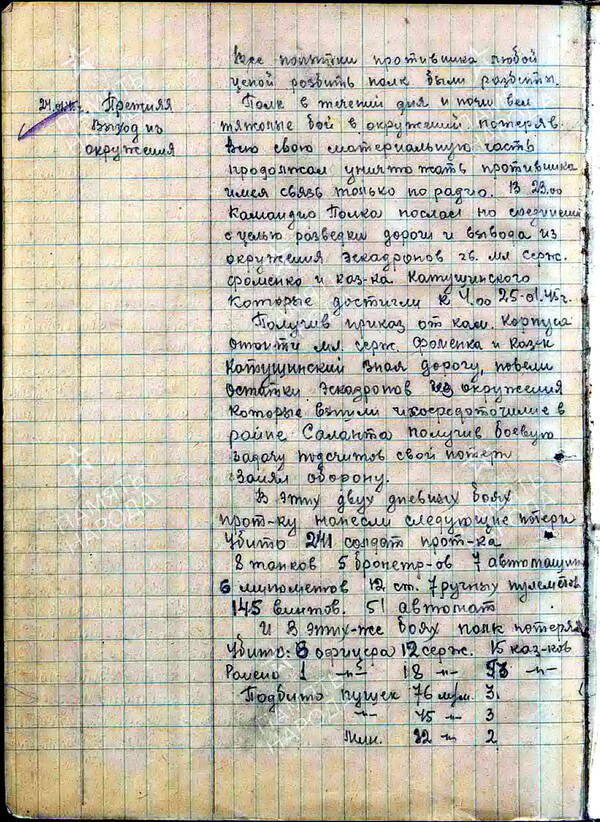 Все попытки противника любой
ценой розбить полк были розбиты.
24.01.45г. Прежняя
Выход из
окружения
Полк в течений дня и ночи вел
тяжолые бой в окружений потеряв
всю свою материальную часть
продолжал уничтожать противника
имея связь только по радио. В 23.00
Командир Полка послал на
с целью розведки дороги и вывода из
окружения Эскадронов гв. мл серж.
Фоменко и каз-ка Катушинского
которые достигли к 4.00 25-01.45г.
Получив приказ от ком. Корпуса
отойти мл. серж. Фоменка и каз-к
Катушинский зная дорогу, повели
остатки Эскадронов из окружения
которые вышли и сосредоточились в
районе Саланта получив боевую
задачу подсчитов свой потери
занял оборону.
В этих двух дневных боях
прот-ку нанесли следующие птери
Убито 241 солдат прот-ка
8 танков 5 бронетр-ов 7 автомашин
6 минометов 12 ст. 7 ручных пулемётов
145 винтов. 51 автомат
И В этих-же боях полк потерял
Убито: 6 офицера 12 серж. 15 каз-ков
Ранено 1 -"- 18 -"- 93 -"-
Подбито пушек 76 мм. 3.
-"- 45 -"- 3
Мин. 82 -"- 2
ПАМЯТЬ НАРОДА
ПАМЯТЬ НАРОДА
ПАМЯТЬ НАРОДА
ПАМЯТЬ НАРОДА